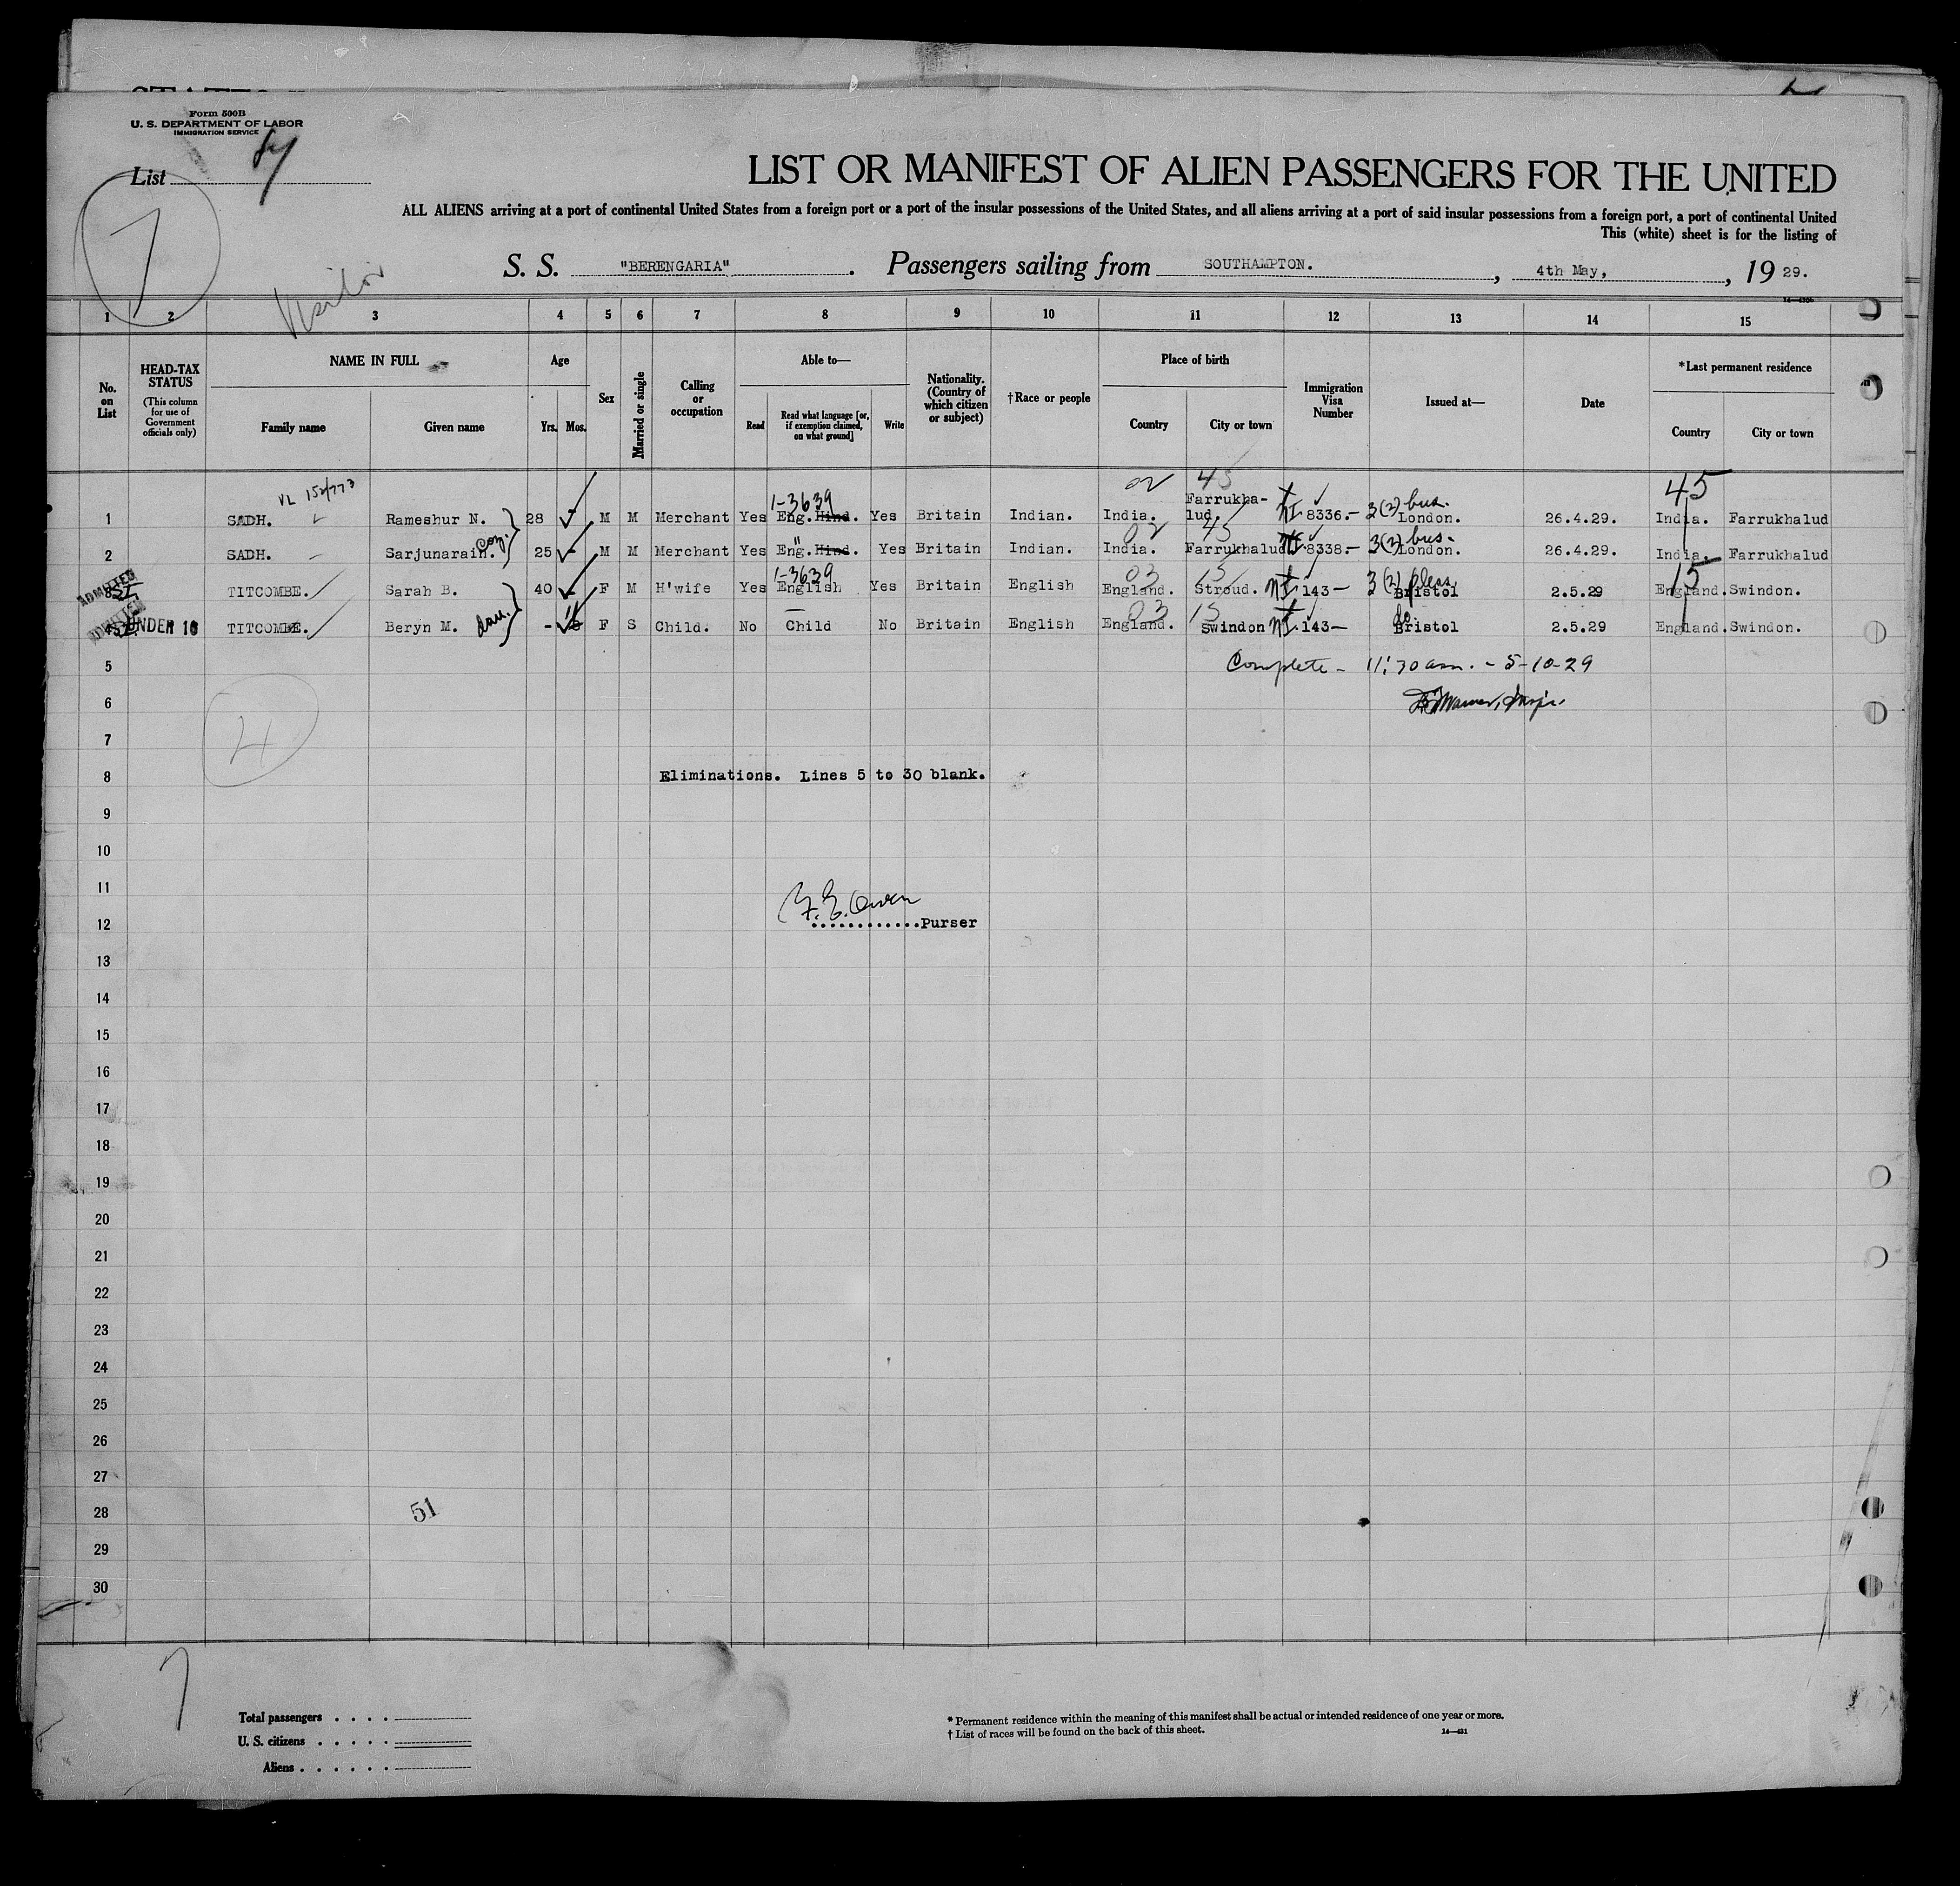 Form 500B
U. S. DEPARTMENT OF LABOR
IMMIGRATION SERVICE
List
7
Visitor
LIST OR MANIFEST OF ALIEN PASSENGERS FOR THE UNITED
ALL ALIENS arriving at a port of continental United States from a foreign port or a port of the insular possessions of the United States, and all aliens arriving at a port of said insular possessions from a foreign port, a port of continental United
This (white) sheet is for the listing of
S. S. "BERENGARIA". Passengers sailing from SOUTHAMPTON., 4th May, , 19 29.
1 2 3 4 5 6 7 8 9 10 11 12 13 14 15
No. on List
HEAD-TAX STATUS
(This column for use of Government officials only)
NAME IN FULL
Family name Given name
Age
Yrs. Mos.
Sex
Married or single
Calling or occupation
Able to—
Read
Read what language [or, if exemption claimed, on what ground]
Write
Nationality. (Country of which citizen or subject)
†Race or people
Place of birth
Country City or town
Immigration Visa Number
Issued at—
Date
*Last permanent residence
Country City or town
VL 152/773 1-3639 45 45
1 SADH. Rameshur N. 28 - M M Merchant Yes Eng. Hind. Yes Britain Indian. India. Farrukha-lud. NI 8336.- 3(2) bus. London. 26.4.29. India. Farrukhalud
02 45
2 SADH. Sarjunarain. Coz. 25 - M M Merchant Yes Eng. " Hind. Yes Britain Indian. India. Farrukhalud NI 8338.- 3(2) bus. London. 26.4.29. India. Farrukhalud
1-3639 03 15 15
ADMITTED 3 TITCOMBE. Sarah B. 40 F M H'wife Yes English Yes Britain English England. Stroud. NI 143- 3(2) pleas. Bristol 2.5.29 England. Swindon.
03 15
ADMITTED 4 UNDER 16 TITCOMBE. Beryn M. dau. - F S Child. No Child No Britain English England. Swindon NI 143- do. Bristol 2.5.29 England. Swindon.
5 Complete - 11:30 am. - 5-10-29
6
4
7
8 Eliminations. Lines 5 to 30 blank.
9
10
11
12 Purser
13
14
15
16
17
18
19
20
21
22
23
24
25
26
27
28 51
29
30
7
Total passengers
U. S. citizens
Aliens
* Permanent residence within the meaning of this manifest shall be actual or intended residence of one year or more.
† List of races will be found on the back of this sheet. 14—431